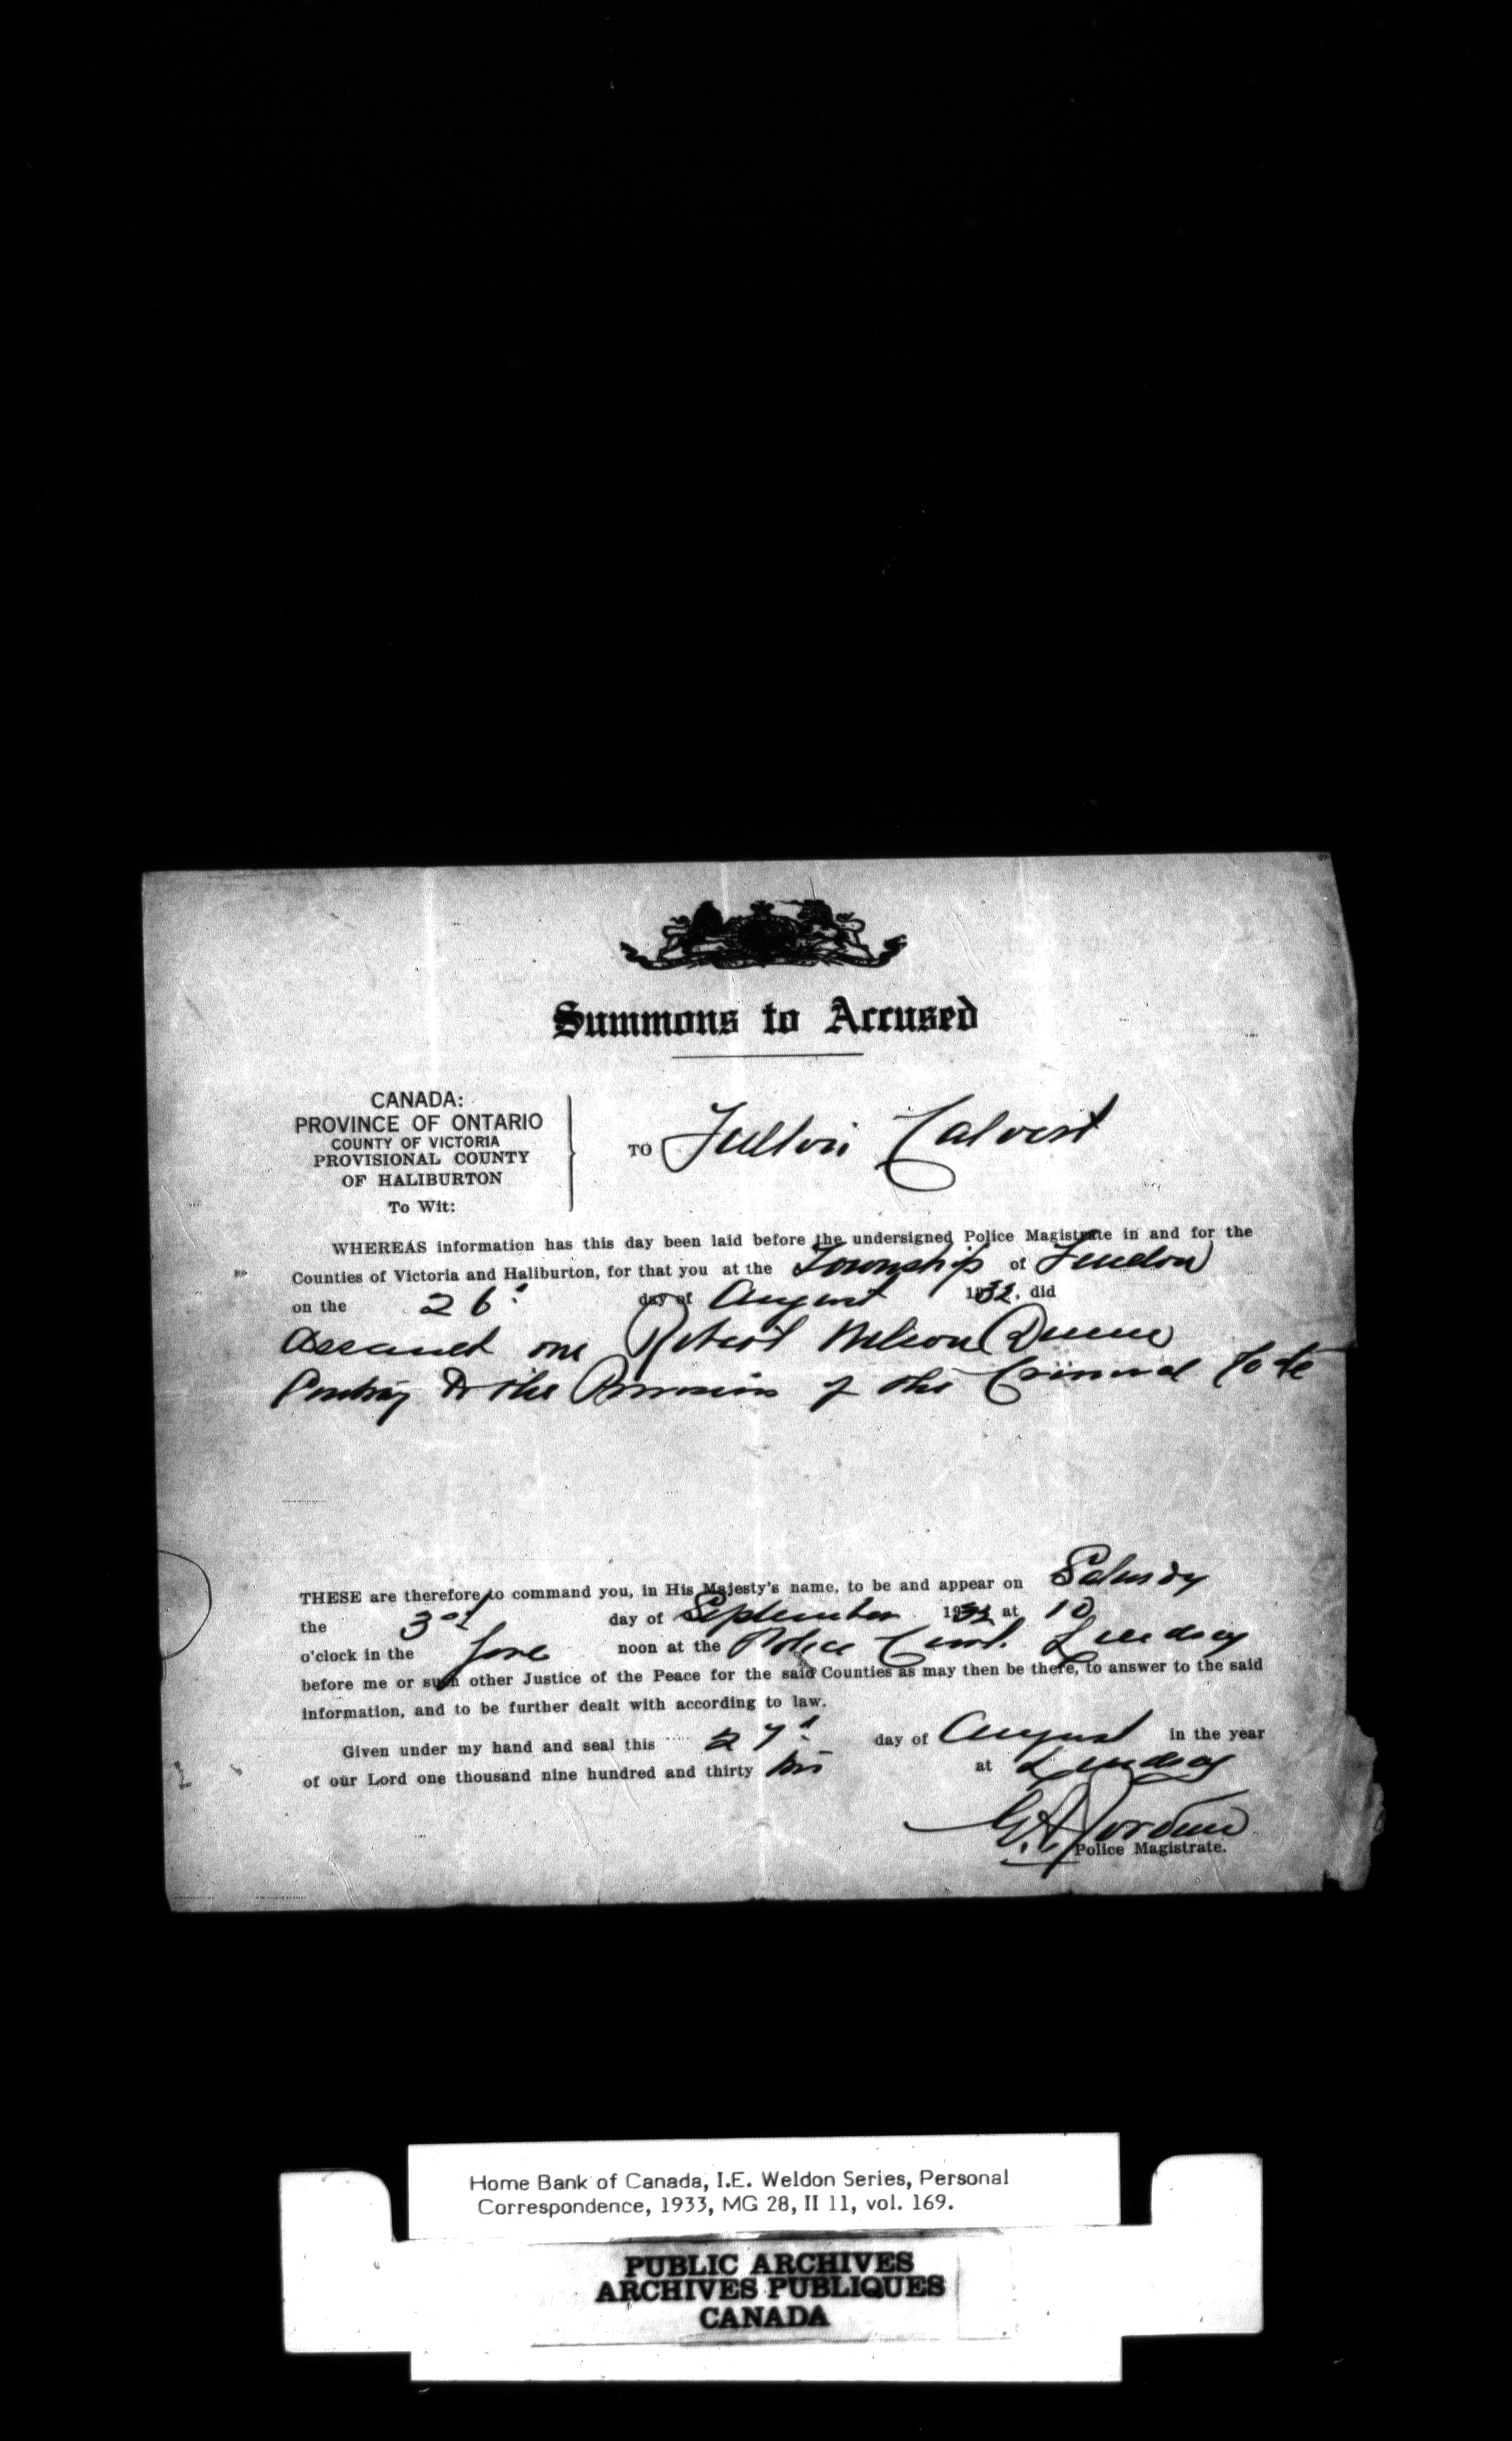 Summons to Accused
CANADA:
PROVINCE OF ONTARIO
COUNTY OF VICTORIA
PROVISIONAL COUNTY
OF HALIBURTON
To Wit:
TO Fulton Calvert
WHEREAS information has this day been laid before the undersigned Police Magistrate in and for the
Counties of Victoria and Haliburton, for that you at the Township of Fenelon
on the 26th day of August 1932, did
assault one Robert Nelson
Contrary to the Provisions of the Criminal Code
THESE are therefore to command you, in His Majesty's name, to be and appear on Saturday
the 3rd day of September 1932 at 10
o'clock in the fore noon at the Police Court Lindsay
before me or such other Justice of the Peace for the said Counties as may then be there, to answer to the said
information, and to be further dealt with according to law.
Given under my hand and seal this 27th day of August in the year
of our Lord one thousand nine hundred and thirty two at Lindsay
Police Magistrate.
Home Bank of Canada, I.E. Weldon Series, Personal
Correspondence, 1933, MG 28, II 11, vol. 169.
PUBLIC ARCHIVES
ARCHIVES PUBLIQUES
CANADA